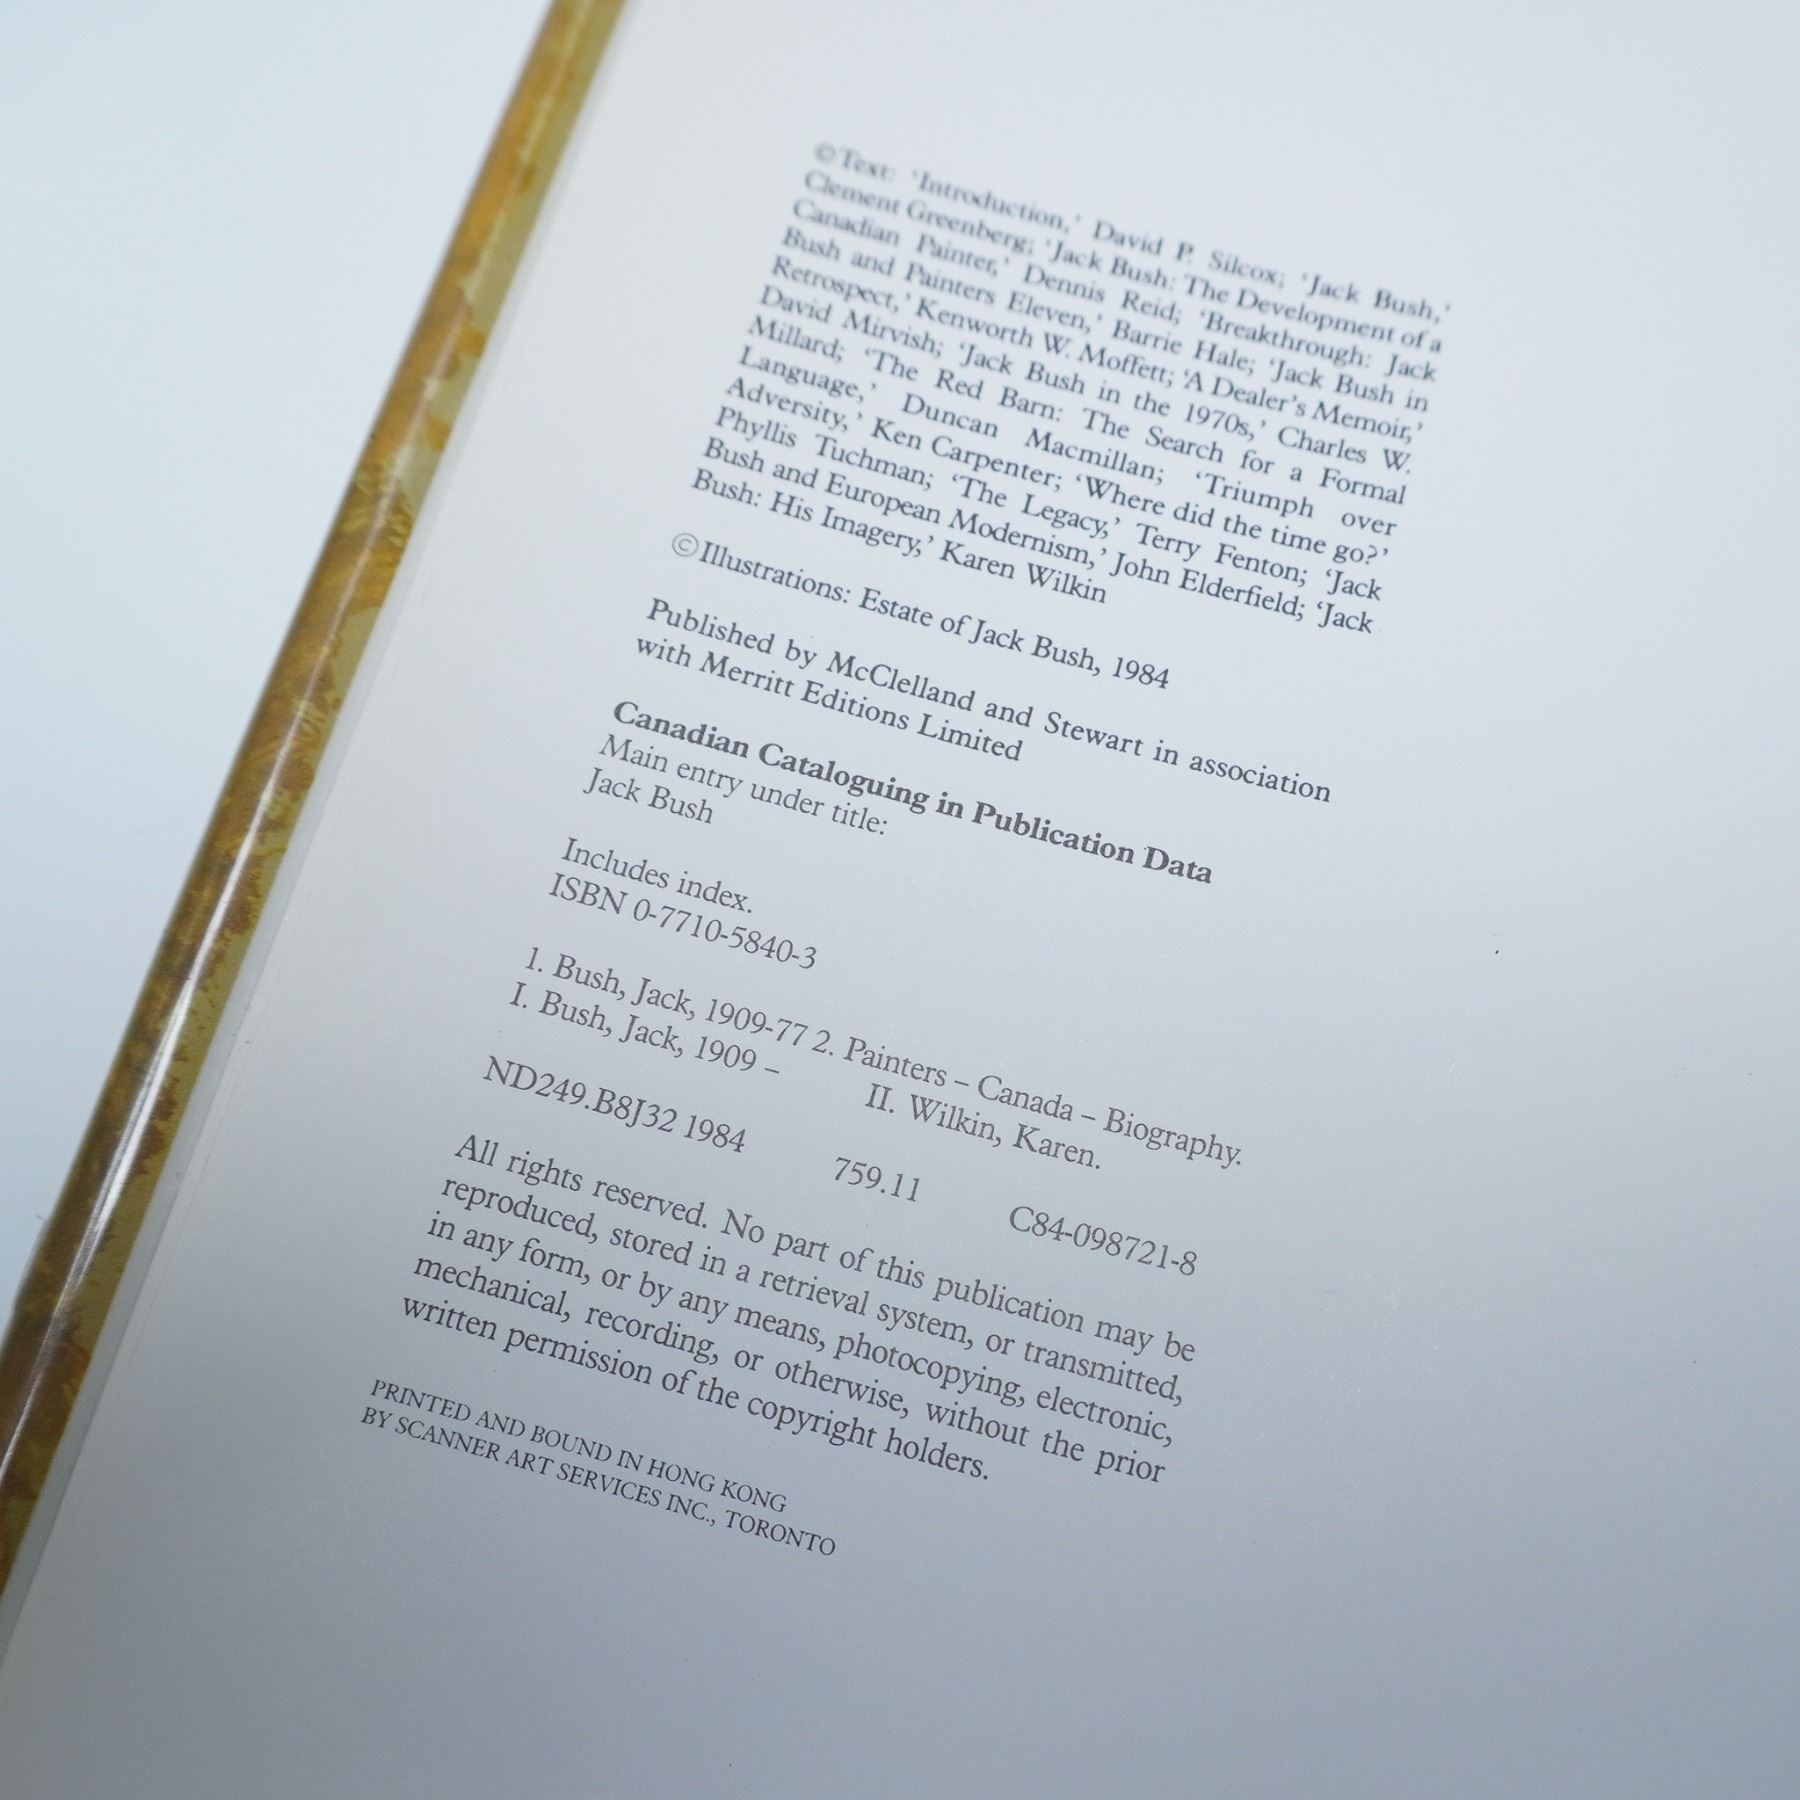 ©Text: ‘Introduction,’ David P. Silcox; ‘Jack Bush,’
Clement Greenberg; ‘Jack Bush: The Development of a
Canadian Painter,’ Dennis Reid; ‘Breakthrough: Jack
Bush and Painters Eleven,’ Barrie Hale; ‘Jack Bush in
Retrospect,’ Kenworth W. Moffett; ‘A Dealer’s Memoir,’
David Mirvish; ‘Jack Bush in the 1970s,’ Charles W.
Millard; ‘The Red Barn: The Search for a Formal
Language,’ Duncan Macmillan; ‘Triumph over
Adversity,’ Ken Carpenter; ‘Where did the time go?’
Phyllis Tuchman; ‘The Legacy,’ Terry Fenton; ‘Jack
Bush and European Modernism,’ John Elderfield; ‘Jack
Bush: His Imagery,’ Karen Wilkin
©Illustrations: Estate of Jack Bush, 1984
Published by McClelland and Stewart in association
with Merritt Editions Limited
Canadian Cataloguing in Publication Data
Main entry under title:
Jack Bush
Includes index.
ISBN 0-7710-5840-3
1. Bush, Jack, 1909-77 2. Painters – Canada – Biography.
I. Bush, Jack, 1909 – II. Wilkin, Karen.
ND249.B8J32 1984 759.11 C84-098721-8
All rights reserved. No part of this publication may be
reproduced, stored in a retrieval system, or transmitted,
in any form, or by any means, photocopying, electronic,
mechanical, recording, or otherwise, without the prior
written permission of the copyright holders.
PRINTED AND BOUND IN HONG KONG
BY SCANNER ART SERVICES INC., TORONTO